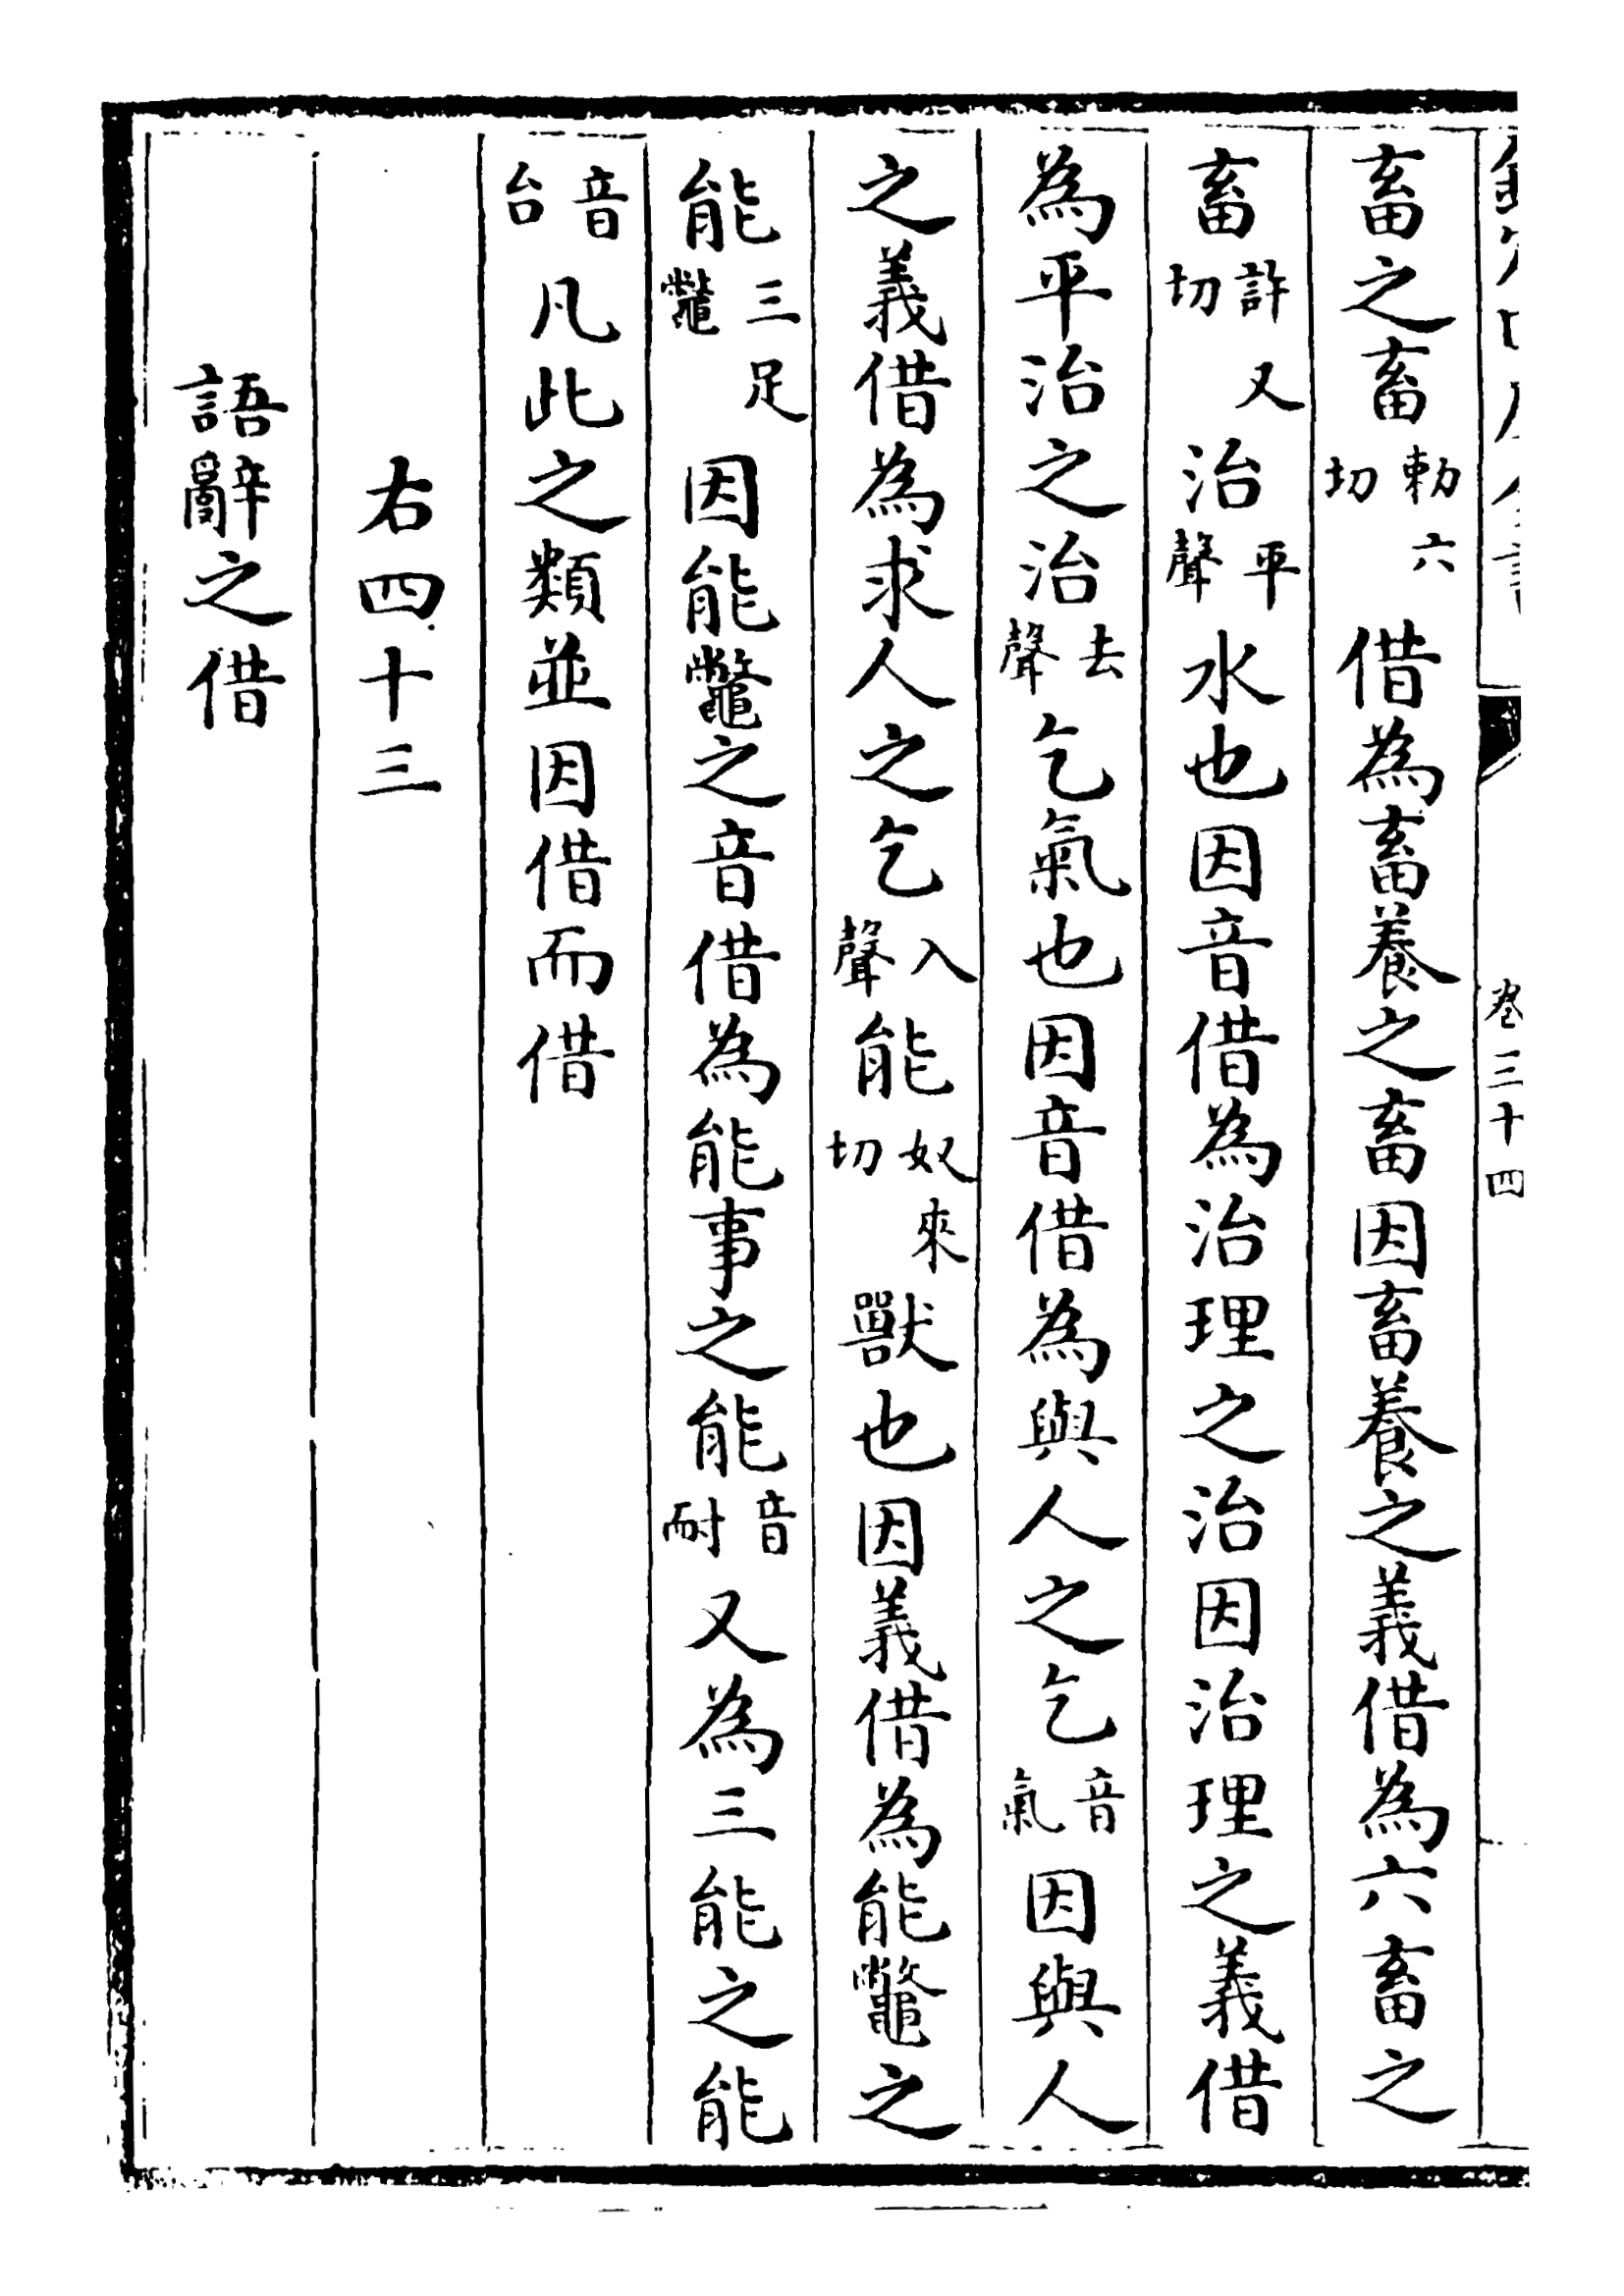 畜之畜勅六切借為畜養之畜因畜養之義借為六畜之
畜許又切治平聲水也因音借為治理之治因治理之義借
為平治之治去聲乞氣也因音借為與人之乞音氣因與人
之義借為求人之乞入聲能奴來切獸也因義借為能鼈之
能三足鼈因能鼈之音借為能事之能音耐又為三能之能
音台凡此之類並因借而借
右四十三
語辭之借
卷三十四